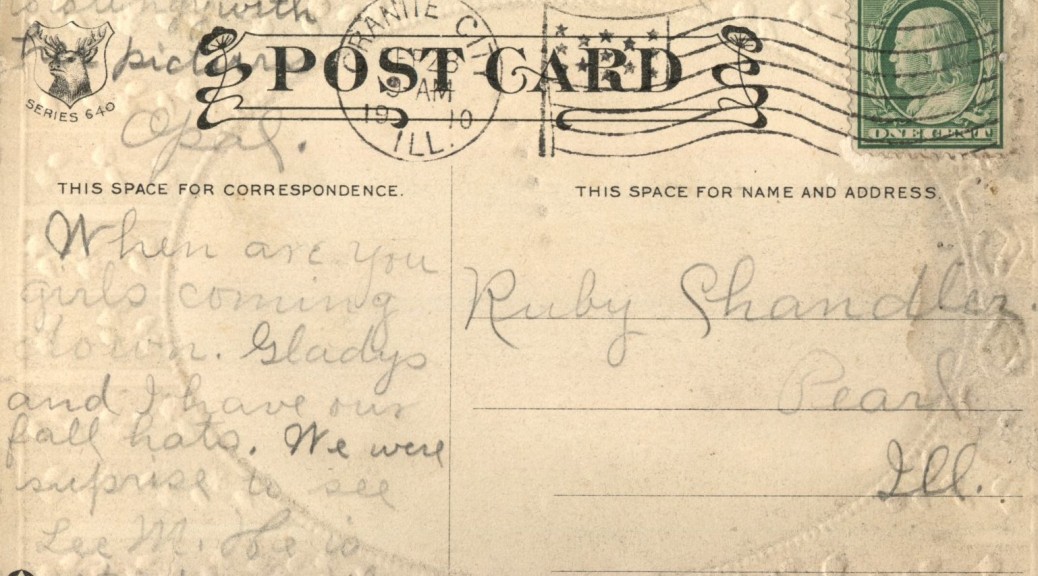 with
pictures
Opal.
SERIES 640
POST CARD
GRANITE CITY
AM
1910
ILL.
ONE CENT
THIS SPACE FOR CORRESPONDENCE.
When are you
girls coming
down. Gladys
and I have our
fall hats. We were
suprise to see
Lee M. He is
THIS SPACE FOR NAME AND ADDRESS.
Ruby Chandler.
Pearl
Ill.